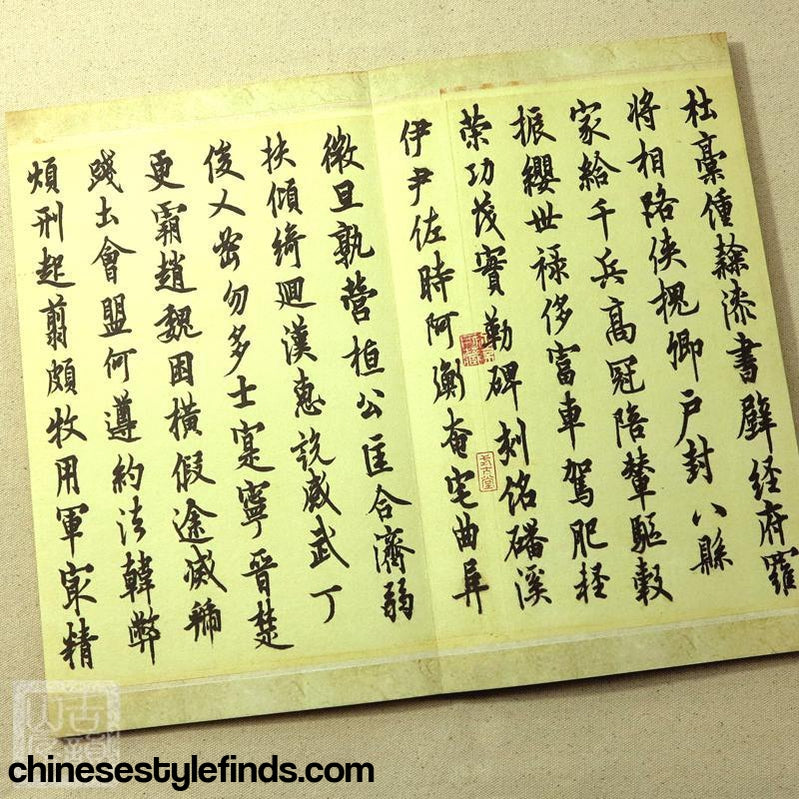 杜稾鍾隸漆書壁経府羅
将相路侠槐卿户封八縣
家給千兵高冠陪輦驅轂
振纓世禄侈富車駕肥軽
策功茂實勒碑刻銘磻溪
伊尹佐時阿衡奄宅曲阜
微旦孰營桓公匡合濟弱
扶傾綺迴漢惠説感武丁
俊乂密勿多士寔寧晉楚
更霸趙魏困横假途滅虢
踐土會盟何遵約法韓弊
煩刑起翦頗牧用軍㝡精
chinesestylefinds.com